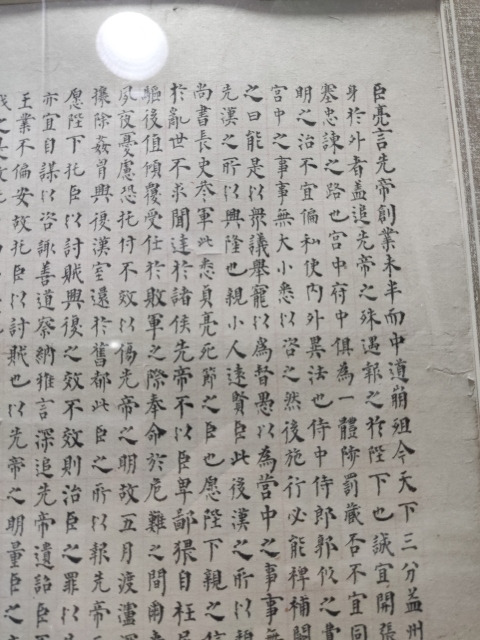 臣亮言先帝創業未半而中道崩殂今天下三分益州
身於外者蓋追先帝之殊遇報之於陛下也誠宜開張
塞忠諫之路也宮中府中俱為一體陟罰臧否不宜同
明之治不宜偏私使內外異法也侍中侍郎郭攸之費
宮中之事事無大小悉以咨之然後施行必能裨補闕
之曰能是以衆議舉寵以為督愚以為營中之事事無
先漢之所以興隆也親小人遠賢臣此後漢之所以
尚書長史參軍此悉貞亮死節之臣也愿陛下親之信
於亂世不求聞達於諸侯先帝不以臣卑鄙猥自枉屈
驅後值傾覆受任於敗軍之際奉命於危難之間爾
夙夜憂慮恐托付不效以傷先帝之明故五月渡瀘
攘除姦興復漢室還於舊都此臣之所以報先帝
愿陛下托臣以討賊興復之效不效則治臣之罪以
亦宜自謀以咨諏善道察納雅言深追先帝遺詔臣
王業不偏安故托臣以討賊也以先帝之明量臣之